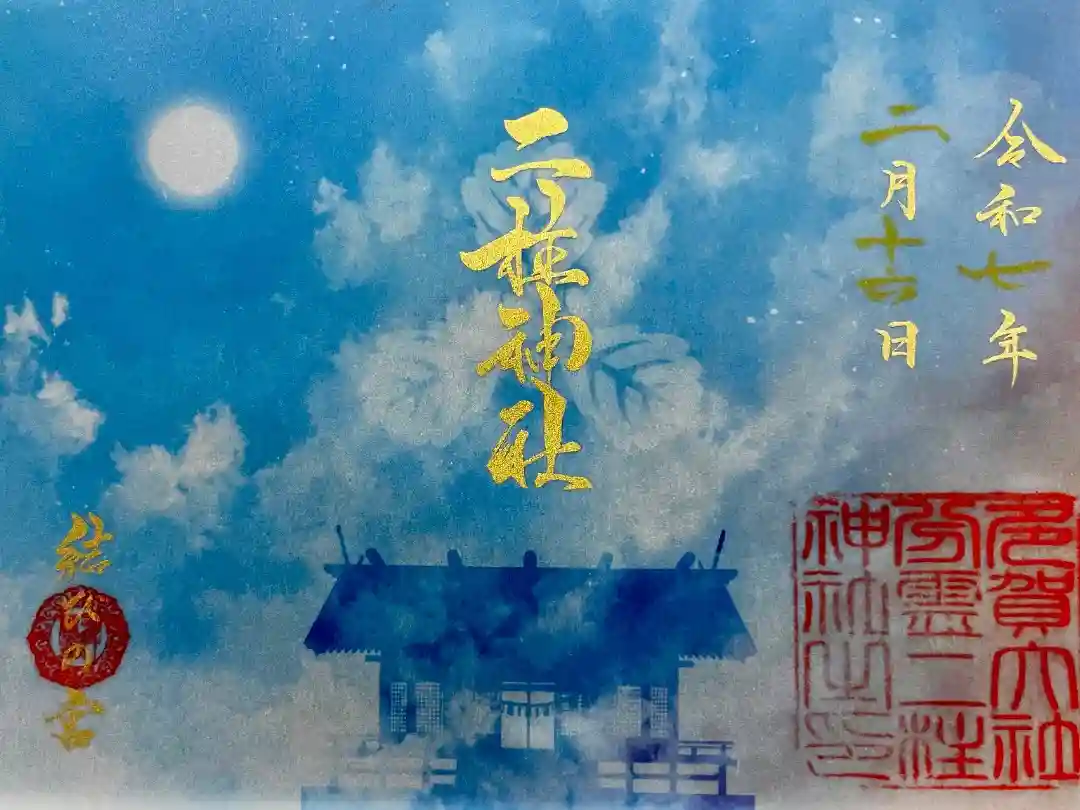 令和七年
二月十六日
二柱神社
結びの宮
多賀大社
分霊二柱
神社之印